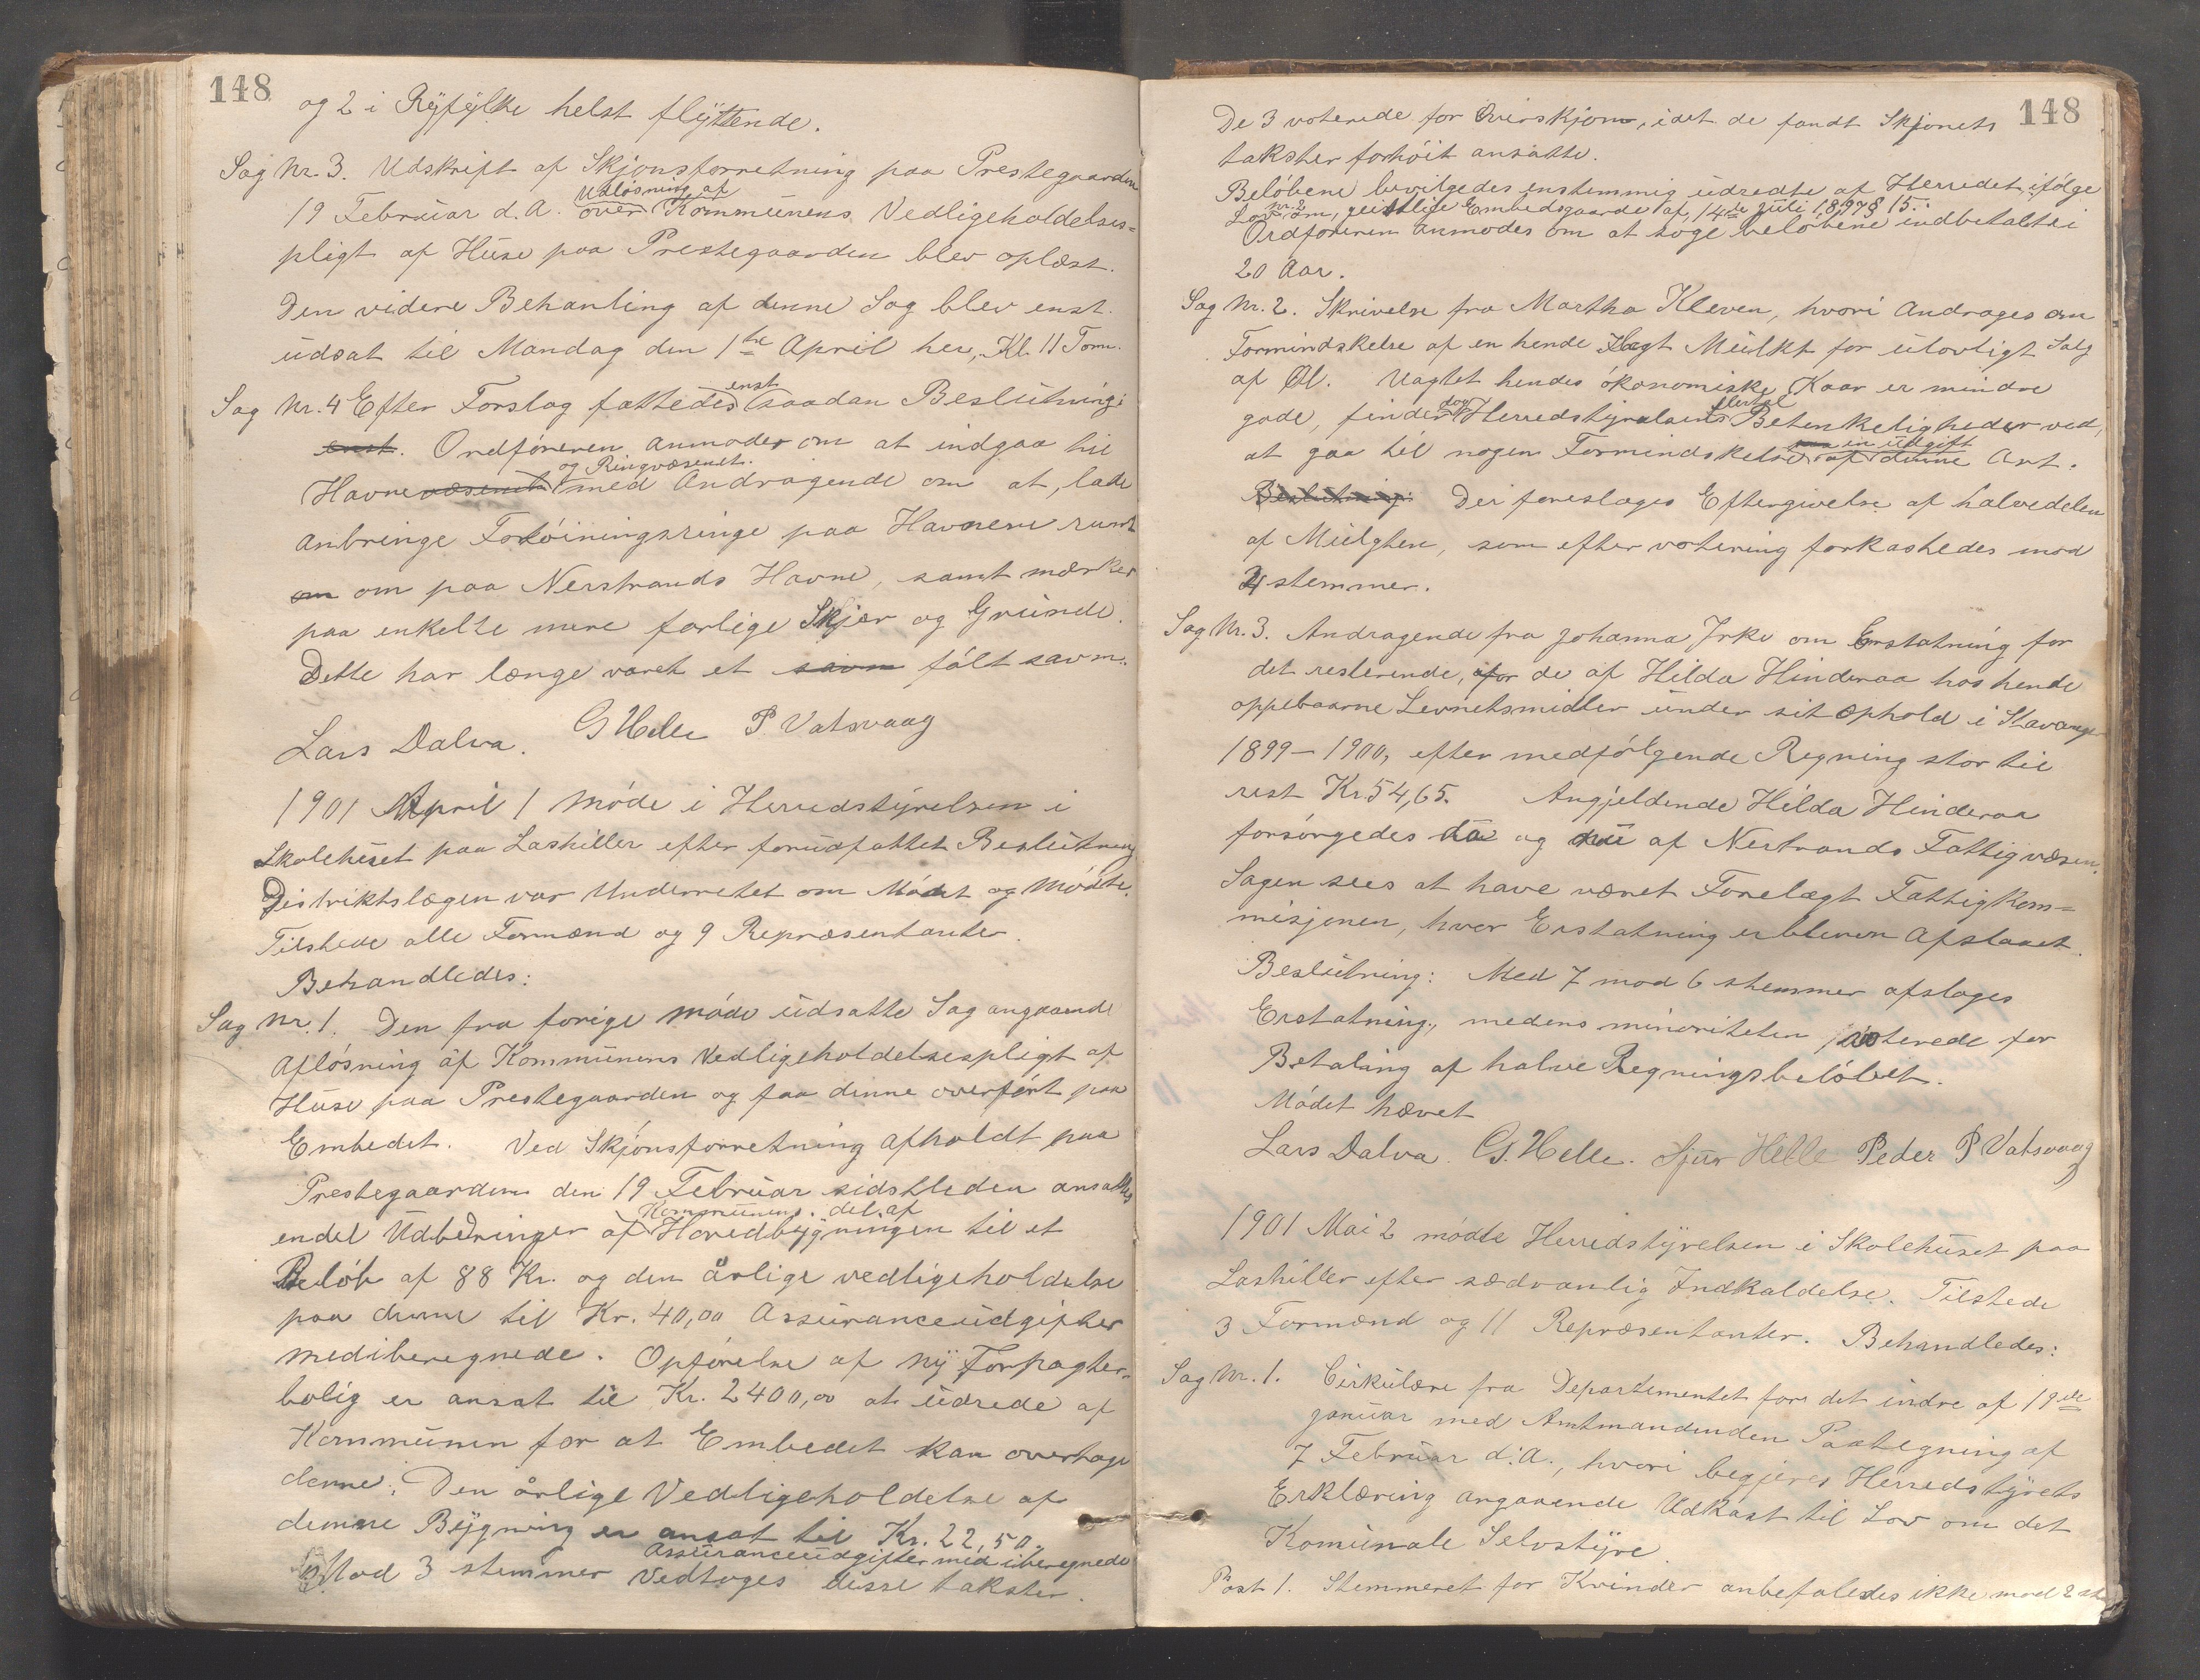 148
og 2 i Ryfylke helst flyttende.
Sag Nr. 3. Udskrift af Skjønsforretning paa Prestegaarden
Udløsning af
19 Februar d. A. over Kommunens Vedligeholdelses=
pligt af Huse paa Prestegaarden blev oplæst.
Den videre Behanling af denne Sag blev enst.
udsat til Mandag den 1ste April her, Kl. 11 Form.
enst
Sag Nr. 4 Efter Forslag fattedes saadan Beslutning:
enst. Ordføreren anmodes om at indgaa til
og Ringvæsenet.
Havnevæsenet med Andragende om at, lade
anbringe Fortøiningsringe paa Havnene rundt
om om paa Nerstrands Havne, samt mærker
paa enkelte mere farlige Skjær og Grunde.
Dette har længe været et savn følt savn.
Lars Dalva. G Helle P Vatsvaag
1901 April 1 Møde i Herredstyrelsen i
Skolehuset paa Laskiller efter forudfattet Beslutning
Distriktslægen var Underretet om Mødet og Mødte.
Tilstede alle Formænd og 9 Repræsentanter.
Behandledes:
Sag Nr. 1. Den fra forige møde udsatte Sag angaaende
Afløsning af Kommunens Vedligeholdelsespligt af
Huse paa Prestegaarden og faa dinne overført paa
Embedet. Ved Skjønsforretning afholdt paa
Prestegaarden den 19 Februar sidstleden ansattes
Kommunens del af
endel Udbedringer af Hovedbygningen til et
Beløb af 88 Kr. og den årlige vedligeholdelse
paa denne til Kr. 40,00 Assuranceudgifter
mediberegnede. Opførelse af ny Forpagter-
bolig er ansat til Kr. 2400,00 at udrede af
Kommunen for at Embedet kan overtage
denne. Den årlige Vedligeholdelse af
denne Bygning er ansat til Kr. 22,50.
Assuranceudgifter med iberegnede
Mod 3 stemmer Vedtoges disse takster.
148
De 3 voterede for Overskjøn, idet de fandt Skjønets
takster forhöit ansatte.
Beløbene bevilgedes enstemmig udredte af Herredet ifølge
Nr. 2
Lov om, geistlige Embedsgaarde af, 14de Juli 1897 § 15.
Ordføreren anmodes om at søge beløbene indbetalt i
20 Aar.
Sag Nr. 2. Skrivelse fra Martha Kleven, hvori Andrages om
Formindskelse af en hende Ilagt Mulkt for ulovligt Salg
af Øl. Uagtet hendes økonomiske Kaar er mindre
dog flertal
gode, finder Herredstyrelsens Betenkeligheder ved,
en udgift
at gaa til nogen Formindskelse af denne Art.
Beslutning: Der foreslages Eftergivelse af halvedelen
af Mulgten, som efter votering forkastedes mod
4 stemmer.
Sag Nr. 3. Andragende fra Johanna Jrke om Erstatning for
det resterende, for de af Hilda Hinderaa hos hende
oppebaarne Levnetsmidler under sit Ophold i Stavanger
1899 – 1900, efter medfølgende Regning stor til
rest Kr. 54,65. Angjeldende Hilda Hinderaa
forsørgedes da og nu af Nerstrands Fattigvæsen.
Sagen sees at have været Forelagt Fattigkom=
misjonen, hvor Erstatning er bleven Afslaaet.
Beslutning: Med 7 mod 6 stemmer afsloges
Erstatning, medens minoriteten voterede for
Betaling af halve Regningsbeløbet.
Mødet hævet
Lars Dalva. G. Helle. Sjur Helle Peder P Vatsvaag
1901 Mai 2 mødte Herredstyrelsen i Skolehuset paa
Laskiller efter sædvanlig Indkaldelse. Tilstede
3 Formænd og 11 Repræsentanter. Behandledes:
Sag Nr. 1. Cirkulære fra Departementet for det indre af 19de
januar med Amtmandenden Paategning af
7 Februar d. A., hvori begjæres Herredstyrets
Erklæring angaaende Udkast til Lov om det
Komunale Selvstyre.
Post 1. Stemmeret for Kvinder anbefaledes ikke mod 2 st